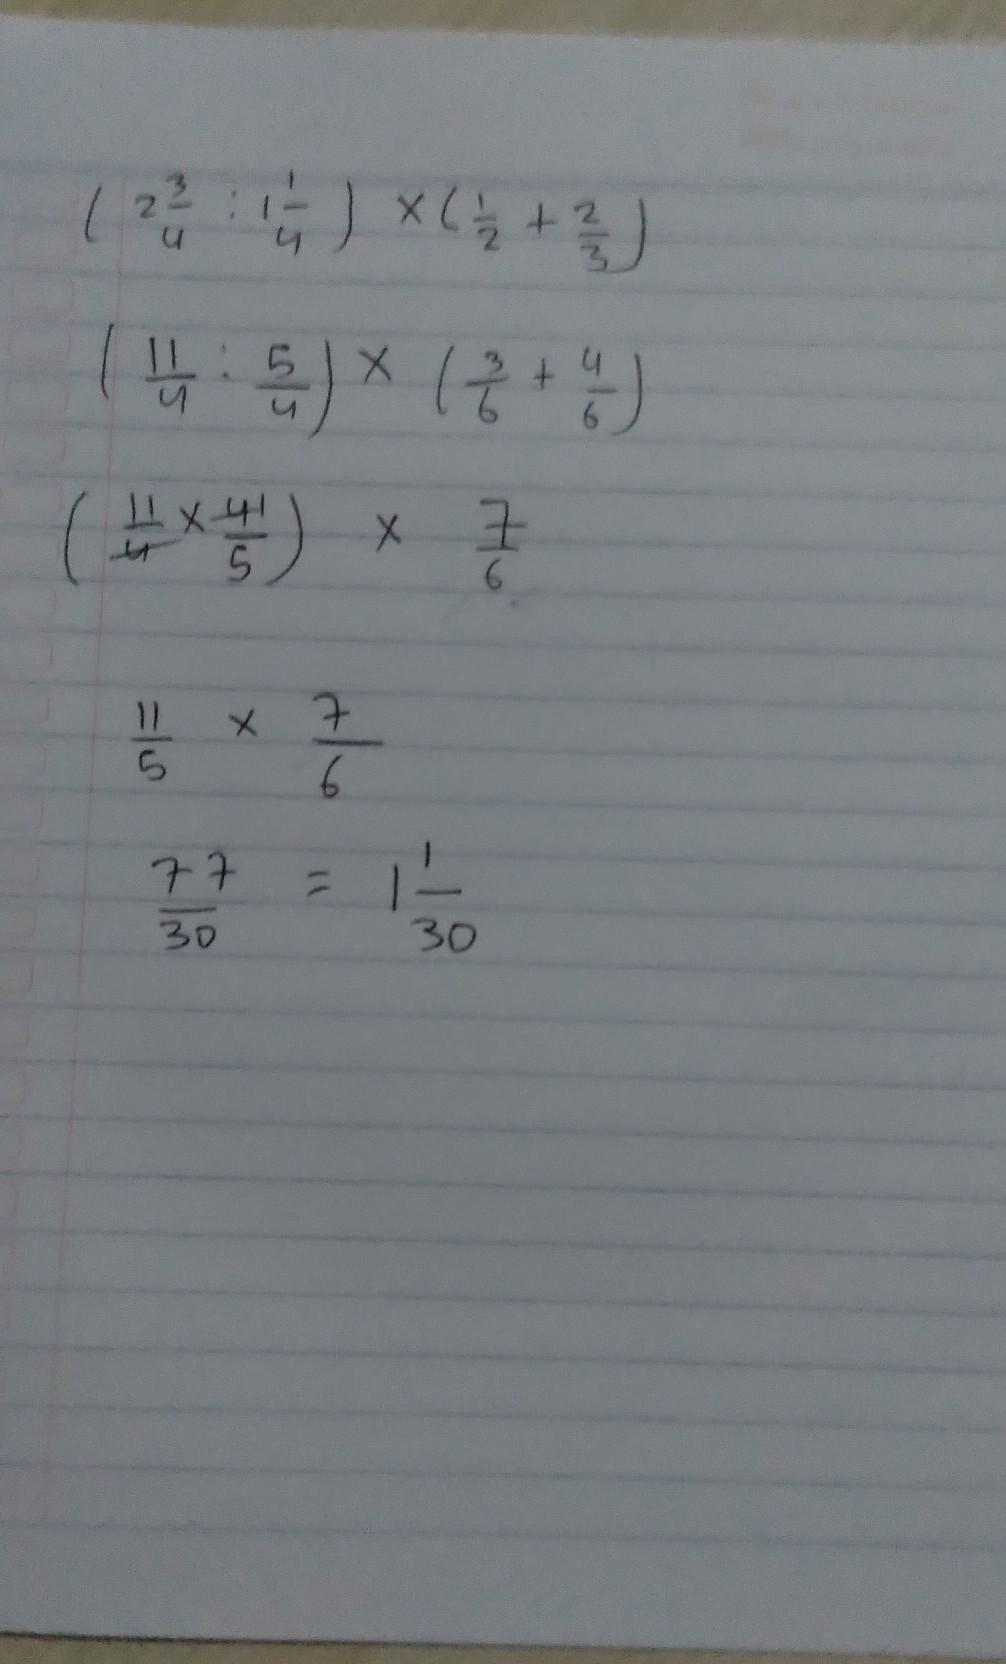 ( 2 3/4 : 1 1/4 ) × ( 1/2 + 2/3 )
( 11/4 : 5/4 ) × ( 3/6 + 4/6 )
( 11/4 × 41/5 ) × 7/6
11/5 × 7/6
77/30 = 1 1/30